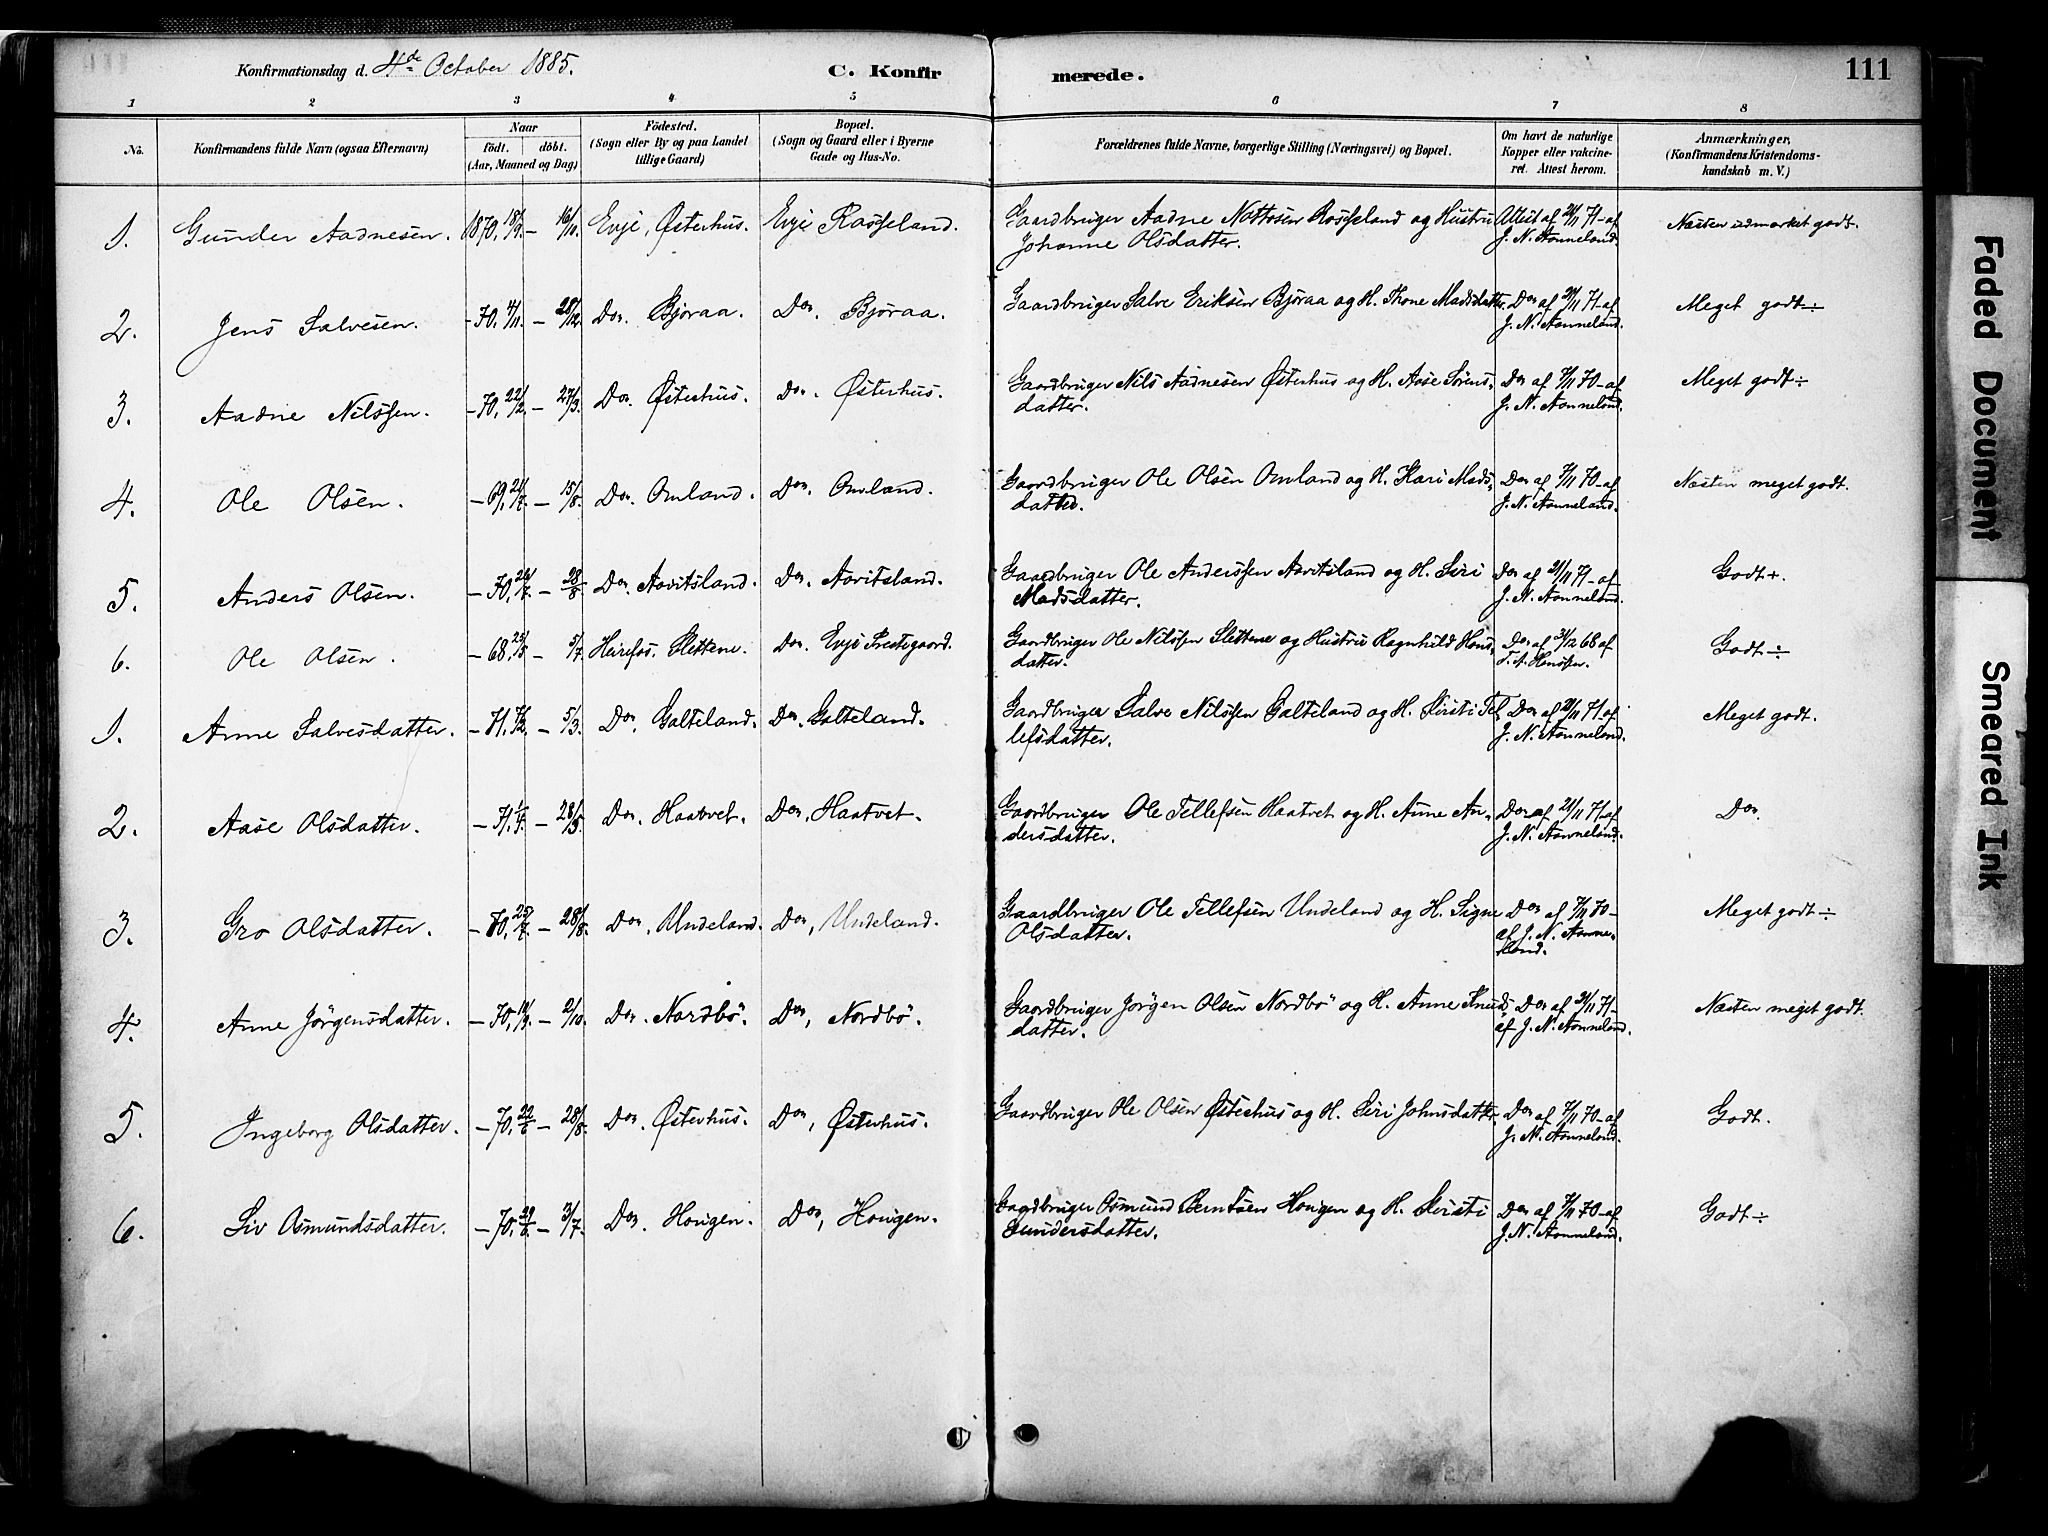 Konfirmationsdag d. 4de October 1885. C. Konfir merede. 111
1 2 3 4 5 6 7 8
No. Konfirmandens fulde Navn (ogsaa Efternavn) Naar födt. döbt. (Aar, Maaned og Dag) Födested. (Sogn eller By og paa Landet tillige Gaard) Bopæl. (Sogn og Gaard eller i Byerne Gade og Hus-No. Forældrenes fulde Navne, borgerlige Stilling (Næringsvei) og Bopæl. Om havt de naturlige Kopper eller vakcineret. Attest herom. Anmærkninger, (Konfirmandens Kristendomskundskab m. V.)
1. Gunder Aadnesen. 1870, 18/9. – 16/10. Evje, Østerhus. Evje Rosseland. Gaardbruger Aadne Nottosen Rosseland og Hustru Attest af 21/11 71 – af Næsten udmærket godt.
Johanne Olsdatter. J. N. Aanneland.
2. Jens Salvesen. – 70, 4/11. – 28/12. Do. Bjøraa. Do. Bjøraa. Gaardbruger Salve Eriksen Bjøraa og H. Thone Madsdatter. Do af 21/11 71 – af Meget godt ÷
J. N. Aanneland.
3. Aadne Nilssen. – 70, 22/2. – 27/3. Do. Østerhus. Do. Østerhus. Gaardbruger Nils Aadnesen Østerhus og H. Aase Sørens- Do af 7/11 70 – af Meget godt ÷
datter. J. N. Aanneland.
4. Ole Olsen. – 69, 21/7. – 15/8. Do. Omland. Do. Omland. Gaardbruger Ole Olsen Omland og H. Kari Mads- Do af 7/11 70 – af Næsten meget godt.
datter. J. N. Aanneland.
5. Anders Olsen. – 70, 26/7. – 28/8 Do. Aavitsland. Do. Aavitsland. Gaardbruger Ole Anderssen Aavitsland og H. Siri Do af 21/11 71 – af Godt +.
Madsdatter. J. N. Aanneland.
6. Ole Olsen. – 68, 23/5 – 5/7. Heirefos. Slettene. Do. Evje Prestegaard. Gaardbruger Ole Nilssen Slettene og Hustru Ragnhild Hans- Do af 31/12 68 af Godt ÷
datter. Hanssen.
1. Anne Salvesdatter. – 71, – 5/3. Do. Galteland. Do. Galteland. Gaardbruger Salve Nilssen Galteland og H. Kirsti Tel Do af 21/11 71 af Meget godt.
lefsdatter. J. N. Aanneland.
2. Aase Olsdatter. – 71, 1/4. – 28/5. Do. Haatvet. Do. Haatvet. Gaardbruger Ole Tellefsen Haatvet og H. Anne An- Do af 21/11 71 – af Do.
dersdatter. J. N. Aanneland.
3. Gro Olsdatter. – 70, 25/7 – 28/8. Do. Undeland. Do, Undeland. Gaardbruger Ole Tellefsen Undeland og H. Signe Do af 7/11 70 – Meget godt ÷
Olsdatter. af J. N. Aanne-
land.
4. Anne Jörgensdatter. – 70, 10/9 – 2/10. Do. Nordbö. Do, Nordbö. Gaardbruger Jörgen Olsen Nordbö og H. Anne Knuds- Do af 21/11 71 – Næsten meget godt.
datter. af J. N. Aanneland.
5. Ingeborg Olsdatter. – 70, 22/6 – 28/8. Do. Østerhus. Do, Østerhus. Gaardbruger Ole Olsen Østerhus og H. Siri Johnsdatter. Do af 7/11 70 – af Godt.
J. N. Aanneland.
6. Liv Asmundsdatter. – 70, 29/6 – 3/7. Do. Hougen. Do, Hougen. Gaardbruger Osmund Berntsen Hougen og H. Kirsti Do af 7/11 70 – af Godt ÷
Gundersdatter. J. N. Aanneland.
Faded Document
Smeared Ink